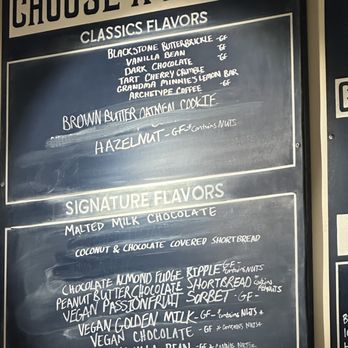 CHOOSE A
CLASSICS FLAVORS
BLACKSTONE BUTTERBRICKLE -GF
VANILLA BEAN -GF
DARK CHOCOLATE -GF
TART CHERRY CRUMBLE
GRANDMA MINNIE'S LEMON BAR
ARCHETYPE COFFEE -GF
BROWN BUTTER OATMEAL COOKIE
HAZELNUT -GF *Contains NUTS
SIGNATURE FLAVORS
MALTED MILK CHOCOLATE
COCONUT & CHOCOLATE COVERED SHORTBREAD
CHOCOLATE ALMOND FUDGE RIPPLE GF- *Contains NUTS
PEANUT BUTTER CHOCOLATE SHORTBREAD *Contains PEANUTS
VEGAN PASSIONFRUIT SORBET -GF-
VEGAN GOLDEN MILK -GF- *Contains NUTS*
VEGAN CHOCOLATE -GF *CONTAINS NUTS*
BEAN -GF